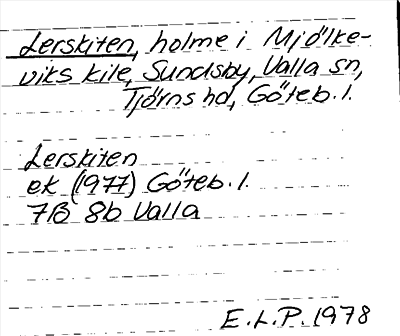 Lerskiten, holme i Mjölke-
viks kile, Sundsby, Valla sn,
Tjörns hd, Göteb. l.
Lerskiten
ek (1977) Göteb. l.
7B 8b Valla
E. L. P. 1978